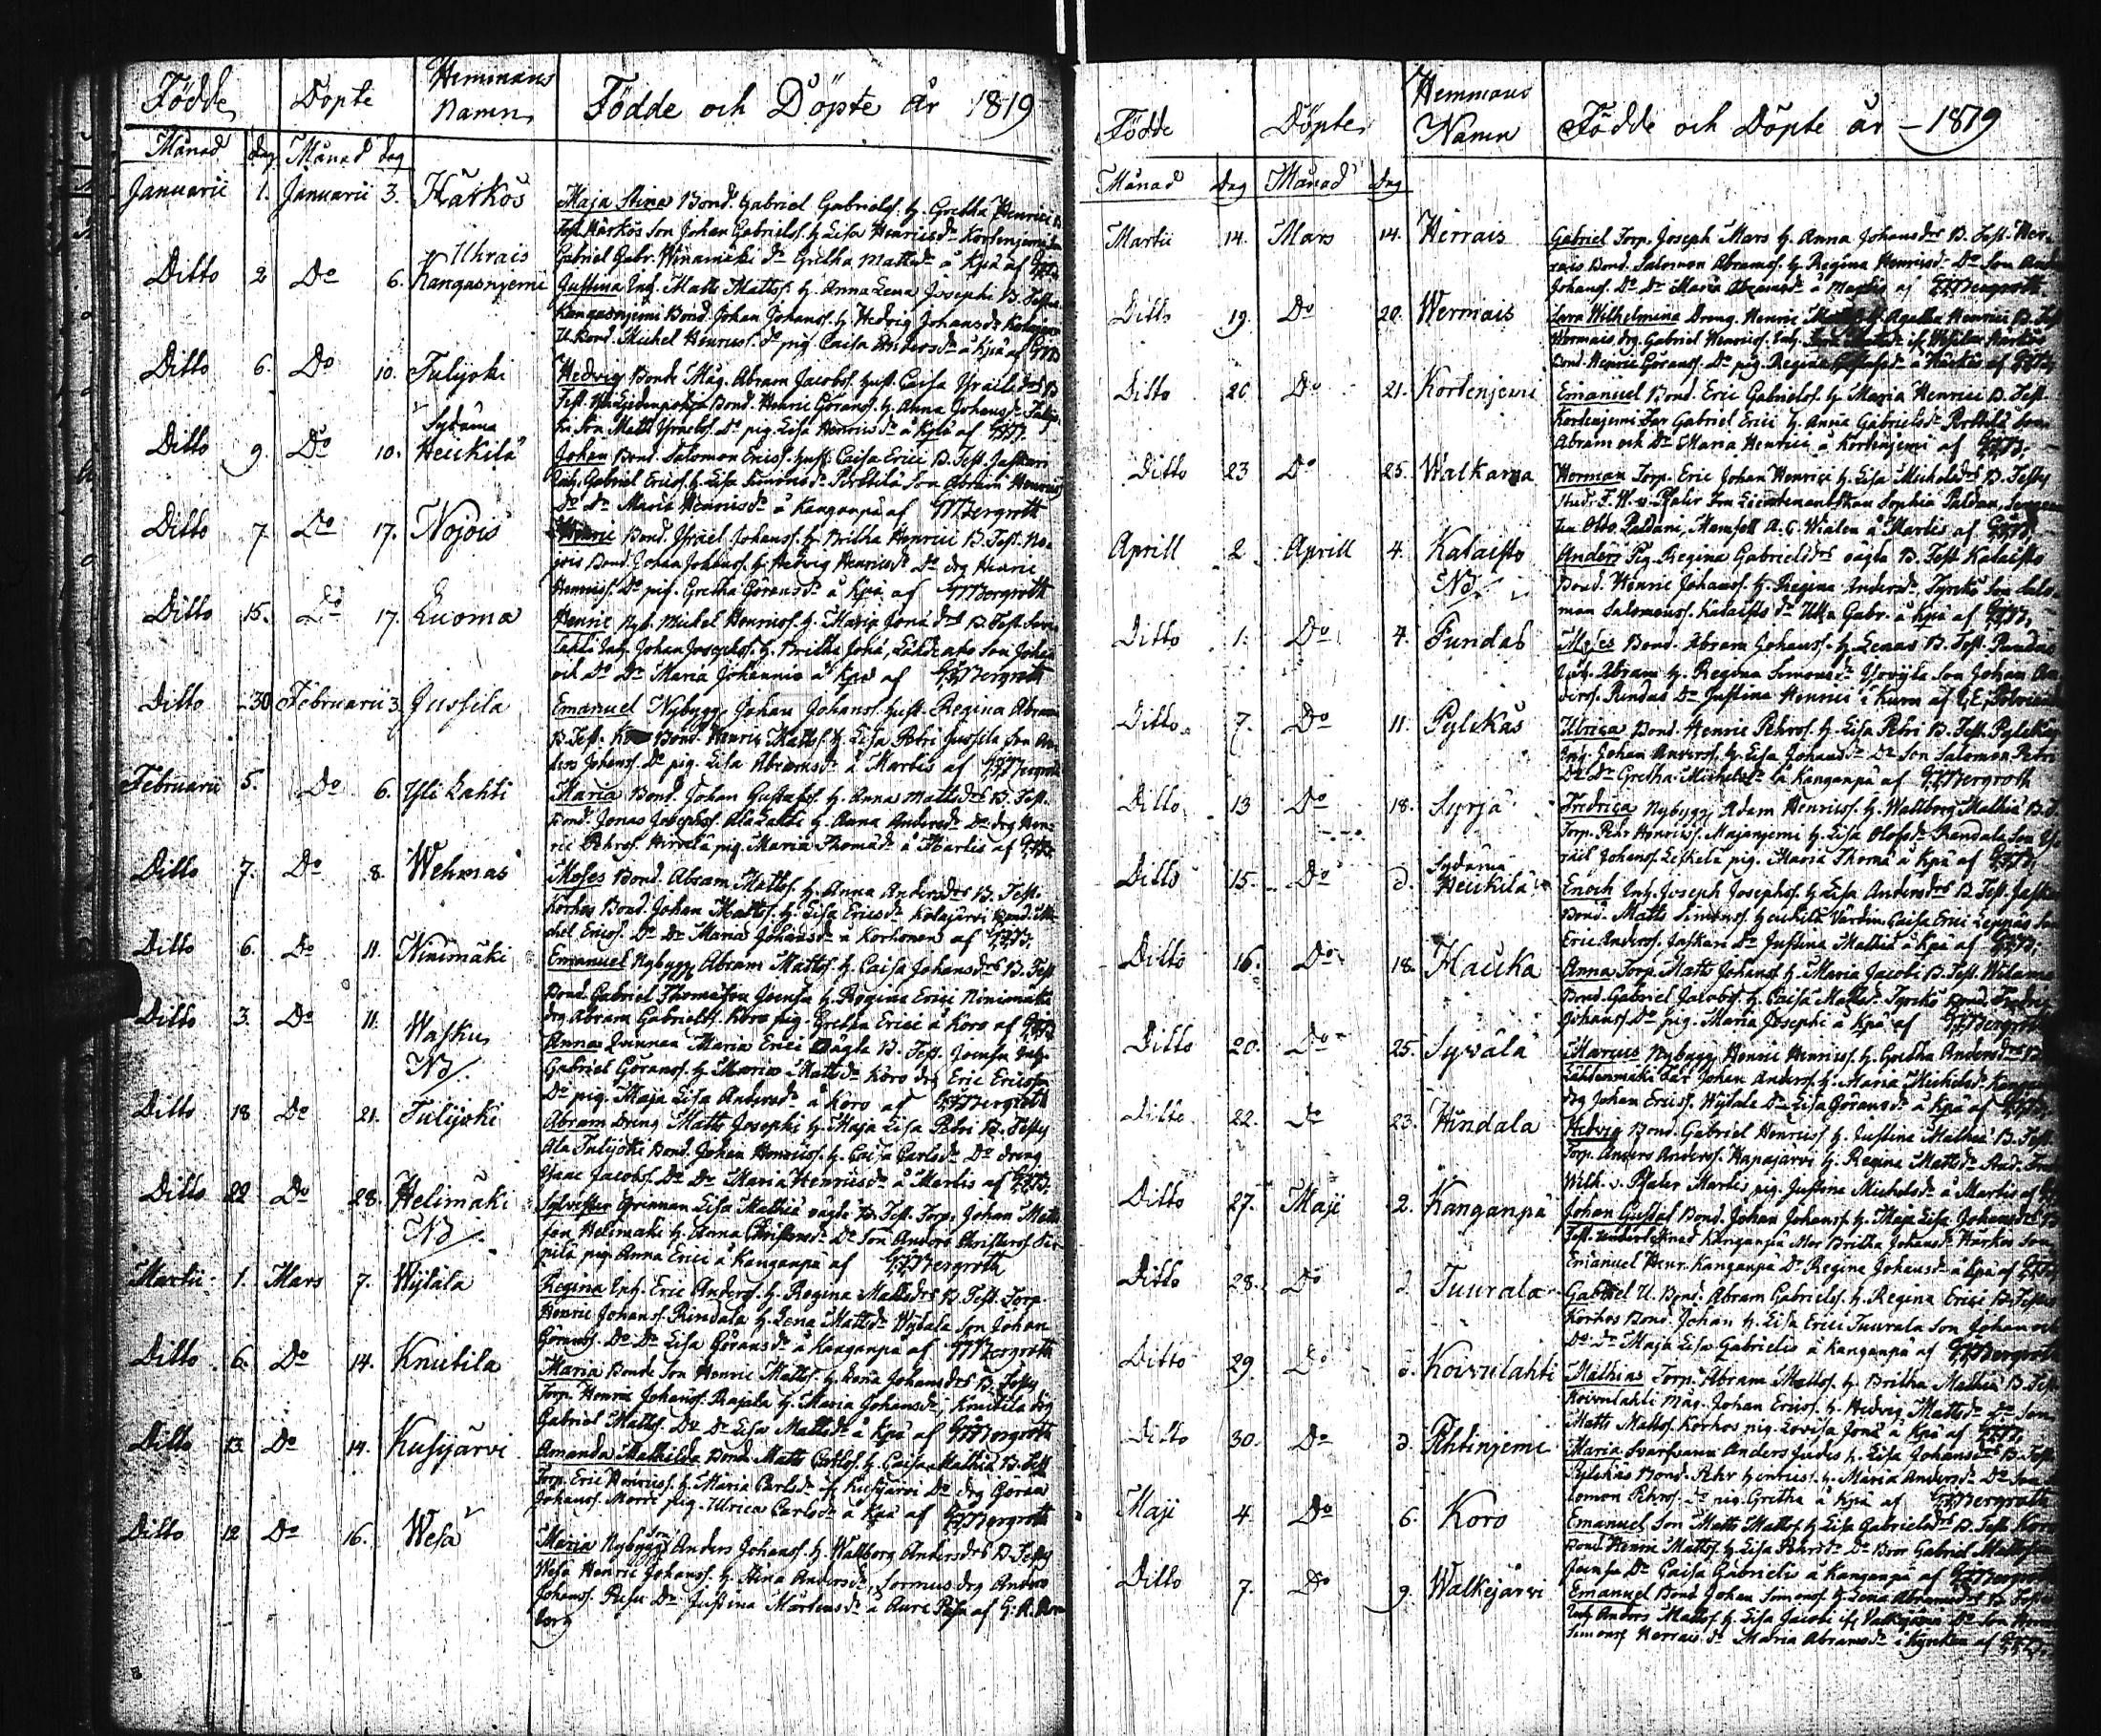 Födde Döpte Hemmans Namn Födde och Döpte år 1819
Månad dag Månad dag
Januarii 1. Januarii 3. Härkös Maja Stina Bond. Gabriel Gabrielss. H. Gretha Henrici
Test. Härkös Son Johan Gabrielss. H. Lisa Henricsdr Kortenjemi
Gabriel Gabr. dr Gretha Mattsdr å Kpä af
Ditto 2 Do 6. Uhrais Kangasnjemi Justina Inh. Matts Mattss. H. Anna Lena Josephi B. Test.
Kangasnjemi Bond. Johan Johanss. H. Hedvig Johansdr
U. Bond. Michel Henricss. Do pig. Caisa Andersdr å Kpä af
Ditto 6. Do 10. Tulijoki Hedvig Bonde Måg. Abram Jacobss. Hust. Caisa Israelsdr B
Test. Bond. Henric Göranss. H. Anna Johansdr
Son Matts Israelss. Do pig. Lisa Henricsdr å Kylä af
Ditto 9. Do 10. Sydäma Heickilä Johan Bond. Salomon Ericss. Hust. Caisa Erici B. Test. Jaskari
Inh. Gabriel Ericss. H. Lisa Simonsdr Perttilä Son Abram Henricss
Do Dr Maria Henricsdr å Kanganpä af Bergroth
Ditto 7 Do 17. Nojois Henric Bond. Israel Johanss. H. Britha Henrici B. Test. No-
jois Bond. Johan Johanss. H. Hedvig Henricsdr Do drg Henric
Henricss. Do pig. Gretha Göransdr å Kpä af Bergroth
Ditto 15. Do 17. Luoma Henric Nyb. Michel Henricss. H. Maria Jonä drs B. Test.
Lahti Inh. Johan Josephss. H. Britha Jonä, Son Johan
och Do Dr Maria Johannis å Kpä af Bergroth
Ditto 30 Februarii 3 Jussila Emanuel Nybygg. Johan Johanss. Hust. Regina Abrami
B. Test. Bond. Henric Mattss. H. Lisa Petri Jussila Son An-
ders Johanss. Do pig. Lisa Abramsdr å Martis af Bergroth
Februarii 5. Do 6. Yli Lahti Maria Bond. Johan Gustafss. H. Anna Mattsdrs B. Test.
Bond. Jonas Josephss. Ala Lahti H. Anna Andersdr Do drg Hen-
ric Pehrss. pig. Maria Thomädr å Martis af
Ditto 7. Do 8. Wehmas Moses Bond. Abram Mattss. H. Anna Andersdrs B. Test.
Korhos Bond. Johan Mattss. H. Lisa Ericsdr Kolajärvi Bond. Mi-
chel Ericss. Do Dr Maria Johansdr å Korhonen af
Ditto 6. Do 11. Ninimäki Emanuel Nybygg. Abram Mattss. H. Caisa Johansdrs B. Test.
Bond. Gabriel Thomasson Joensu H. Regina Erici Ninimäki
drg Abram Gabrielss. Koro pig. Gretha Erici å Koro af
Ditto 3. Do 11. Wasku Nb Anna Qvinnan Maria Erici oägta B. Test. Joensu Inh.
Gabriel Göranss. H. Maria Mattsdr Koro drg Eric Ericsson
Do pig. Maja Lisa Andersdr å Koro af Bergroth
Ditto 18 Do 21. Tulijoki Abram Dreng Matts Josephi H. Maja Lisa Petri B. Testes
Ala Tulijoki Bond. Johan Henricss. H. Caisa Carlsdr Do dreng
Isaac Jacobss. Do Dr Maria Henricsdr å Martis af
Ditto 22 Do 28. Helimäki Nb Sylvester Qvinnan Lisa Mathiä oägta B. Test. Torp. Johan Matts
son Helimäki H. Anna Christersdr Do Son Anders Christerss.
pilä pig. Anna Erici å Kanganpä af Bergroth
Martii 1. Mars 7. Wijtala Regina Inh. Eric Anderss. H. Regina Mattsdrs B. Test. Torp
Henric Johanss. Rindala H. Lena Mattsdr Wijtala Son Johan
Göranss. Do Dr Lisa Göransdr å Kanganpä af Bergroth
Ditto 6. Do 14. Knutila Maria Bonde Son Henric Mattss. H. Lena Johansdrs B. Testes
Torp. Henric Johanss. Rajala H. Maria Johansdr, Knutila drg
Gabriel Mattss. Do Dr Lisa Mattsdr å Kpä af Bergroth
Ditto 13. Do 14. Kusijärvi Amanda Mathilda Bond. Matts Carlss. H. Caisa Mathiä B. Test
Torp. Eric Henricss. H. Maria Carlsdr Kusijärvi Do drg Göran
Johanss. Morri pig. Ulrica Carlsdr å Kpä af Bergroth
Ditto 12 Do 16. Wesa Maria Nybygg. Son Anders Johanss. H. Wallborg Andersdrs B. Testes
Wesa Henric Johanss. H. Stina Andersdr, Sormus drg Anders
Johanss. Do Justina Mårtensdr å Aure af
Födde Döpte Hemmans Namn Födde och Döpte år 1819
Månad Dag Månad Dag
Martii 14. Mars 14. Herrais Gabriel Torp. Joseph Mars H. Anna Johansdrs B. Test. Her-
rais Bond. Salomon Abramss. H. Regina Henricsdr Do Son
Johanss. Do Dr Maria Abramsdr å Martis af Bergroth
Ditto 19. Do 20. Wermais Lovra Wilhelmina Dreng. Henric H. Agatha Henrici B. Test
Wermais, drg. Gabriel Henricss. Inh. Härkös
Bond. Henric Göranss. Do pig. Regina å Härkös af
Ditto 20 Do 21. Kortenjemi Emanuel Bond. Eric Gabrielss. H. Maria Henrici B. Test.
Kortenjemi Far Gabriel Erici H. Anna Gabrielsdr Perttilä Son
Abram och Dr Maria Henrici å Kortenjemi af
Ditto 23 Do 25. Walkama Herman Torp. Eric Johan Henrici H. Lisa Michelsdrs B. Testes
F. W. v. Pfaler Fru Lieutenantskan Sophia Paldan,
Otto Paldani, Mamsell A. C. Wialen å Martis af
Aprill 2 Aprill 4. Kalaisto Nb Anders Pig. Regina Gabrielsdrs oägta B. Test Kalaisto
Bond. Henric Johanss. H. Regina Andersdr, Tyrkö Son Salo-
mon Salomonss. Kalaisto Dr Ulla Gabr. å Kpä af
Ditto 1. Do 4. Pundas Moses Bond. Abram Johanss. H. Lenas B. Test. Pundas
Inh. Abram H. Regina Simonsdr Son Johan An-
derss. Rindas Dr Justina Henrici i Kuru af
Ditto 7. Do 11. Pylckäs Ulrica Bond. Henric Pehrss. H. Lisa Petri B. Test. Pylckäs
Inh. Johan Anderss. H. Lisa Johansdr Do Son Salomon Petri
Do Dr Gretha Michelsdr å Kanganpä af Bergroth
Ditto 13 Do 18. Syrjä Fredrica Nybygg. Adam Henricss. H. Wallborg Mathiä B. T.
Torp. Pehr Henricss. Majanjemi H. Lisa Olofsdr Son Is-
rael Johanss. Leskelä pig. Maria Thomä å Kpä af
Ditto 15. Do d. Sydäma Heickilä Enoch Inh. Joseph Josephss. H. Lisa Andersdrs B. Test. Jaskari
Bond. Matts Simonss. Heickilä Caisa Erici Leppäs Son
Eric Anderss. Jaskari Dr Justina Mathiä å Kpä af
Ditto 16. Do 18. Haucka Anna Torp. Matts Johanss. H. Maria Jacobi B. Test. Wilama
Bond. Gabriel Jacobss. H. Caisa Mattsdr Tyrkö Bond. Fredric
Johanss. Do pig. Maria Josephi å Kpä af Bergroth
Ditto 20. Do 25. Syvälä Marcus Nybygg. Henric Henricss. H. Gretha Andersdrs B
Lähdenmäki Far Johan Anderss. H. Maria Michelsdr
drg Johan Ericss. Wijtala Dr Lisa Göransdr å Kpä af
Ditto 22. Do 23. Hindala Hedvig Bond. Gabriel Henricss H. Justina Mathiä B. Test.
Torp. Anders Anderss. Hapajärvi H. Regina Mattsdr
Wilh. v. Pfaler Martis pig. Justina Michelsdr å Martis af
Ditto 27. Maji 2. Kanganpä Johan Gustaf Bond. Johan Johanss. H. Maja Lisa Johansdrs B
Test. Kanganpä Mor Britha Johansdr Härkös Son
Emanuel Henr. Kanganpä Dr Regina Johansdr å Kpä af
Ditto 28. Do d. Tuurala Gabriel U. Bond. Abram Gabrielss. H. Regina Erici B. Testes
Korhos Bond. Johan H. Lisa Erici Tuurala Son Johan och
Do Dr Maja Lisa Gabrielis å Kanganpä af Bergroth
Ditto 29. Do d. Koivulahti Mathias Torp. Abram Mattss. H. Britha Mathiä B. Test.
Koivulahti Måg. Johan Ericss. H. Hedvig Mattsdr Do Son
Matts Mattss. Korhos pig. Lovisa Jonä å Kpä af
Ditto 30. Do d. Pihtinjemi Maria Svarfvaren Anders Judes H. Lisa Johansdrs B. Test.
Pylckäs Bond. Pehr Henricss. H. Maria Andersdr Do Son Sa-
lomon Pehrss. Do pig. Gretha å Kpä af Bergroth
Maji 4. Do 6. Koro Emanuel Son Matts Mattss. H. Lisa Gabrielsdrs B. Test. Koro
Bond. Henric Mattss. H. Lisa Pehrsdr Do Bror Gabriel Mattsson
Joensu Dr Caisa Gabrielis å Kanganpä af Bergroth
Ditto 7. Do 9. Walkejärvi Emanuel Bond. Johan Simonss. H. Lena Abramsdrs B. Testes
Inh. Anders Mattss. H. Lisa Jacobi Valkejärvi Do Son
Simonss Herrais Dr Maria Abramsdr i Kyrckan af